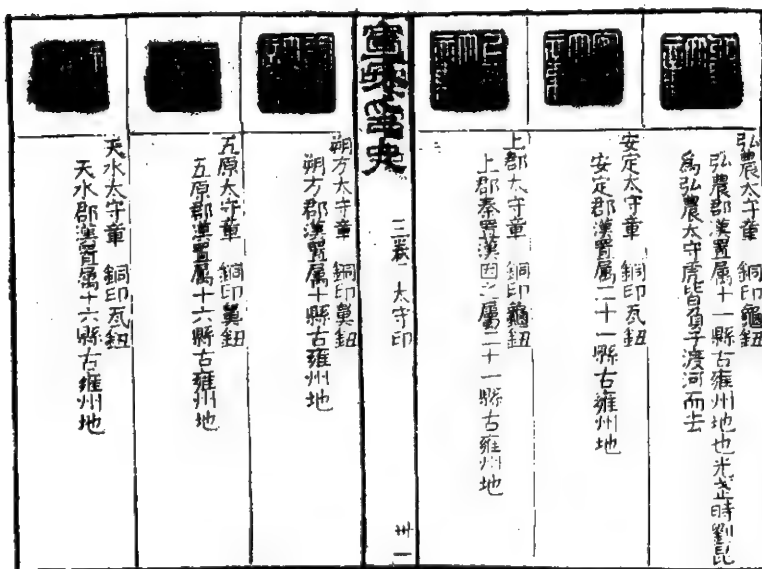 弘農太守章　銅印龜鈕
弘農郡漢置属十一縣古雍州地也光武時劉昆
為弘農太守虎皆負子渡河而去
安定太守章　銅印瓦鈕
安定郡漢置属二十一縣古雍州地
上郡太守章　銅印龜鈕
上郡秦置漢因之属二十一縣古雍州地
宣和印史
三卷　太守印
卅一
朔方太守章　銅印鼻鈕
朔方郡漢置属十縣古雍州地
五原太守章　銅印鼻鈕
五原郡漢置属十六縣古雍州地
天水太守章　銅印瓦鈕
天水郡漢置属十六縣古雍州地